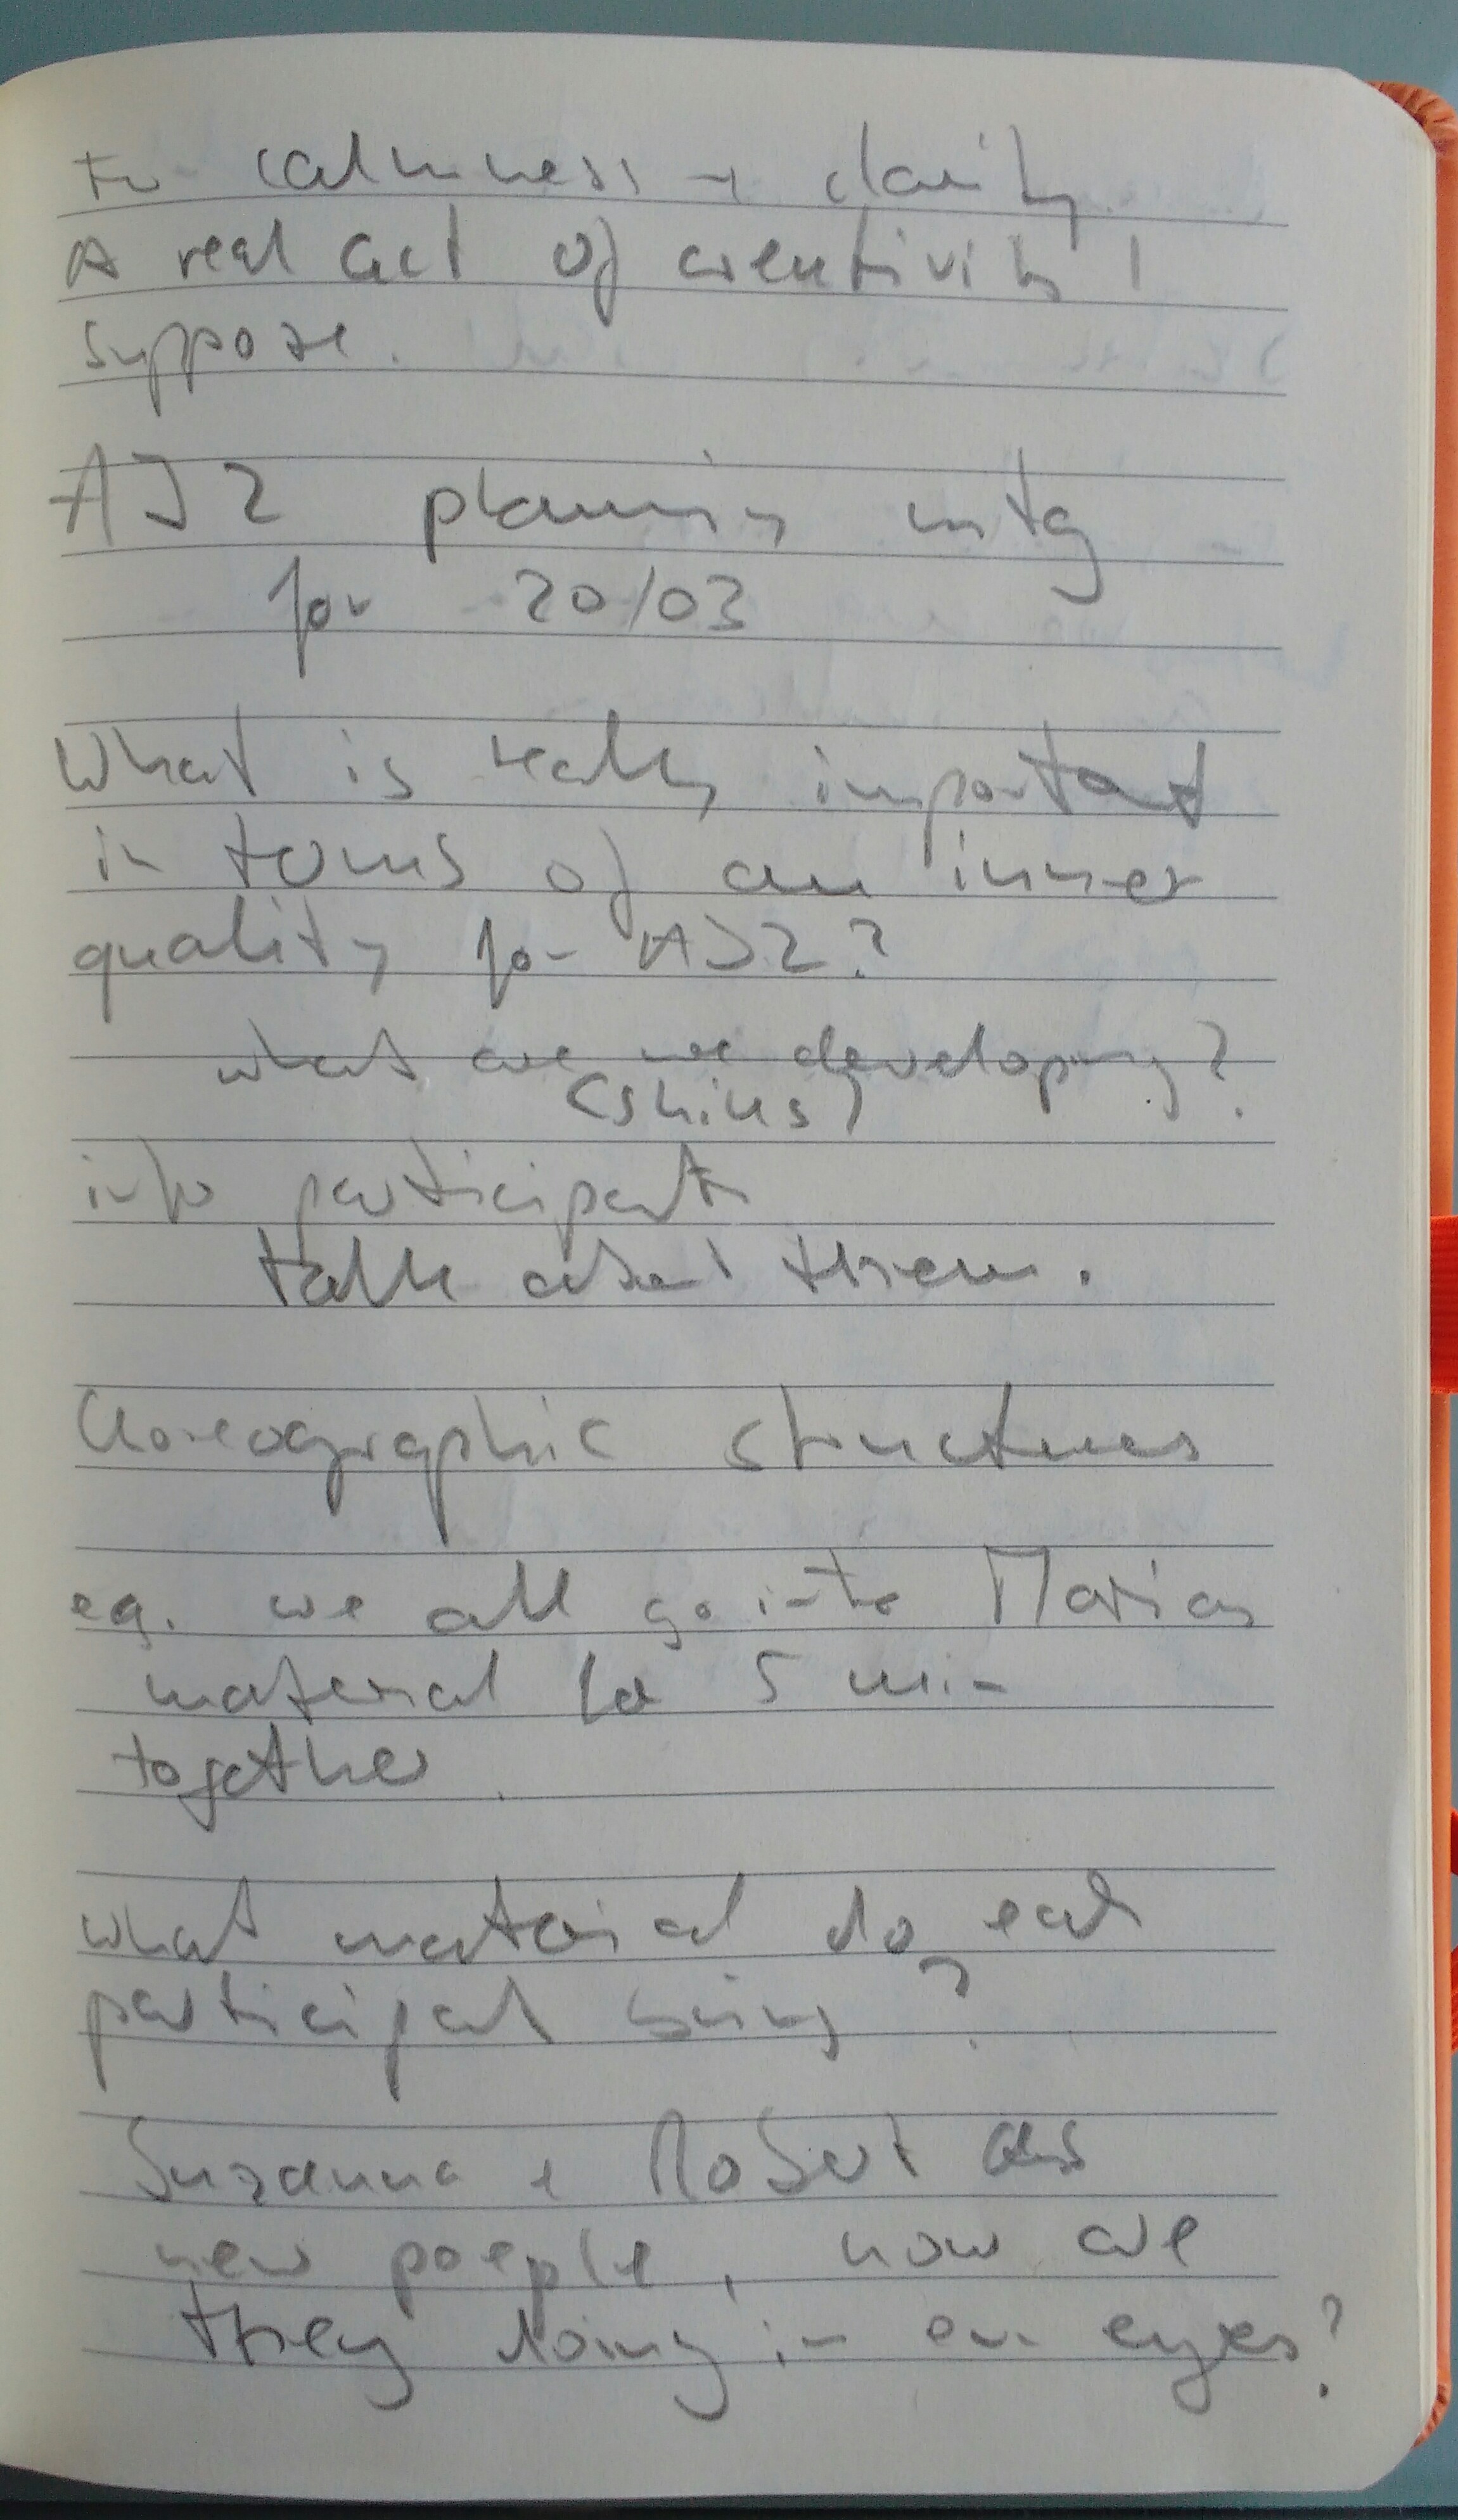 for calmness + clarity
A real act of creativity I
suppose.
AJ2 planning mtg
for 20/03
What is really important
in terms of an inner
quality for AJ2?
what are we developing?
(skills)
info participants
talk about them.
Choreographic structures
eg. we all go into Marias
material for 5 min
together.
what material do each
participant bring?
Suzanna + Robert as
new poeple, how are
they doing in our eyes?